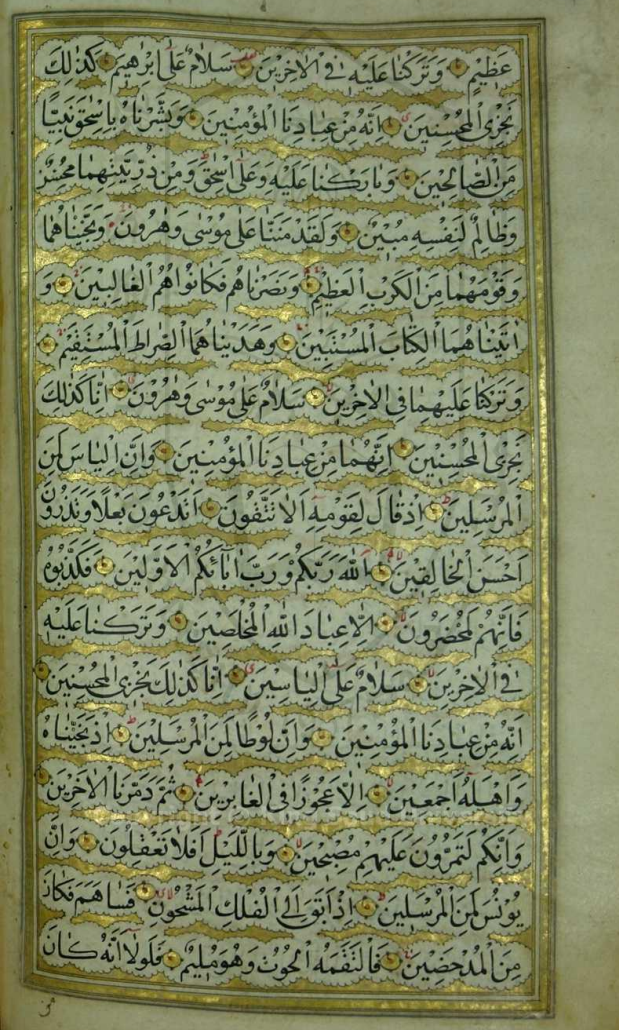 عَظِيمٍ وَتَرَكْنَا عَلَيْهِ فِي الْاٰخِرِينَ سَلَامٌ عَلٰى اِبْرٰهِيمَ كَذٰلِكَ
نَجْزِى الْمُحْسِنِينَ اِنَّهُ مِنْ عِبَادِنَا الْمُؤْمِنِينَ وَبَشَّرْنَاهُ بِاِسْحٰقَ نَبِيًّا
مِنَ الصَّالِحِينَ وَبَارَكْنَا عَلَيْهِ وَعَلٰى اِسْحٰقَ وَمِنْ ذُرِّيَّتِهِمَا مُحْسِنٌ
وَظَالِمٌ لِنَفْسِهِ مُبِينٌ وَلَقَدْ مَنَنَّا عَلٰى مُوسٰى وَهٰرُونَ وَنَجَّيْنَاهُمَا
وَقَوْمَهُمَا مِنَ الْكَرْبِ الْعَظِيمِ وَنَصَرْنَاهُمْ فَكَانُوا هُمُ الْغَالِبِينَ وَ
اٰتَيْنَاهُمَا الْكِتَابَ الْمُسْتَبِينَ وَهَدَيْنَاهُمَا الصِّرَاطَ الْمُسْتَقِيمَ
وَتَرَكْنَا عَلَيْهِمَا فِي الْاٰخِرِينَ سَلَامٌ عَلٰى مُوسٰى وَهٰرُونَ اِنَّا كَذٰلِكَ
نَجْزِى الْمُحْسِنِينَ اِنَّهُمَا مِنْ عِبَادِنَا الْمُؤْمِنِينَ وَاِنَّ اِلْيَاسَ لَمِنَ
الْمُرْسَلِينَ اِذْ قَالَ لِقَوْمِهِ اَلَا تَتَّقُونَ اَتَدْعُونَ بَعْلًا وَتَذَرُونَ
اَحْسَنَ الْخَالِقِينَ اَللّٰهَ رَبَّكُمْ وَرَبَّ اٰبَآئِكُمُ الْاَوَّلِينَ فَكَذَّبُوهُ
فَاِنَّهُمْ لَمُحْضَرُونَ اِلَّا عِبَادَ اللّٰهِ الْمُخْلَصِينَ وَتَرَكْنَا عَلَيْهِ
فِي الْاٰخِرِينَ سَلَامٌ عَلٰى اِلْيَاسِينَ اِنَّا كَذٰلِكَ نَجْزِى الْمُحْسِنِينَ
اِنَّهُ مِنْ عِبَادِنَا الْمُؤْمِنِينَ وَاِنَّ لُوطًا لَمِنَ الْمُرْسَلِينَ اِذْ نَجَّيْنَاهُ
وَاَهْلَهُ اَجْمَعِينَ اِلَّا عَجُوزًا فِي الْغَابِرِينَ ثُمَّ دَمَّرْنَا الْاٰخَرِينَ
وَاِنَّكُمْ لَتَمُرُّونَ عَلَيْهِمْ مُصْبِحِينَ وَبِاللَّيْلِ اَفَلَا تَعْقِلُونَ وَاِنَّ
يُونُسَ لَمِنَ الْمُرْسَلِينَ اِذْ اَبَقَ اِلَى الْفُلْكِ الْمَشْحُونِ فَسَاهَمَ فَكَانَ
مِنَ الْمُدْحَضِينَ فَالْتَقَمَهُ الْحُوتُ وَهُوَ مُلِيمٌ فَلَوْلَا اَنَّهُ كَانَ